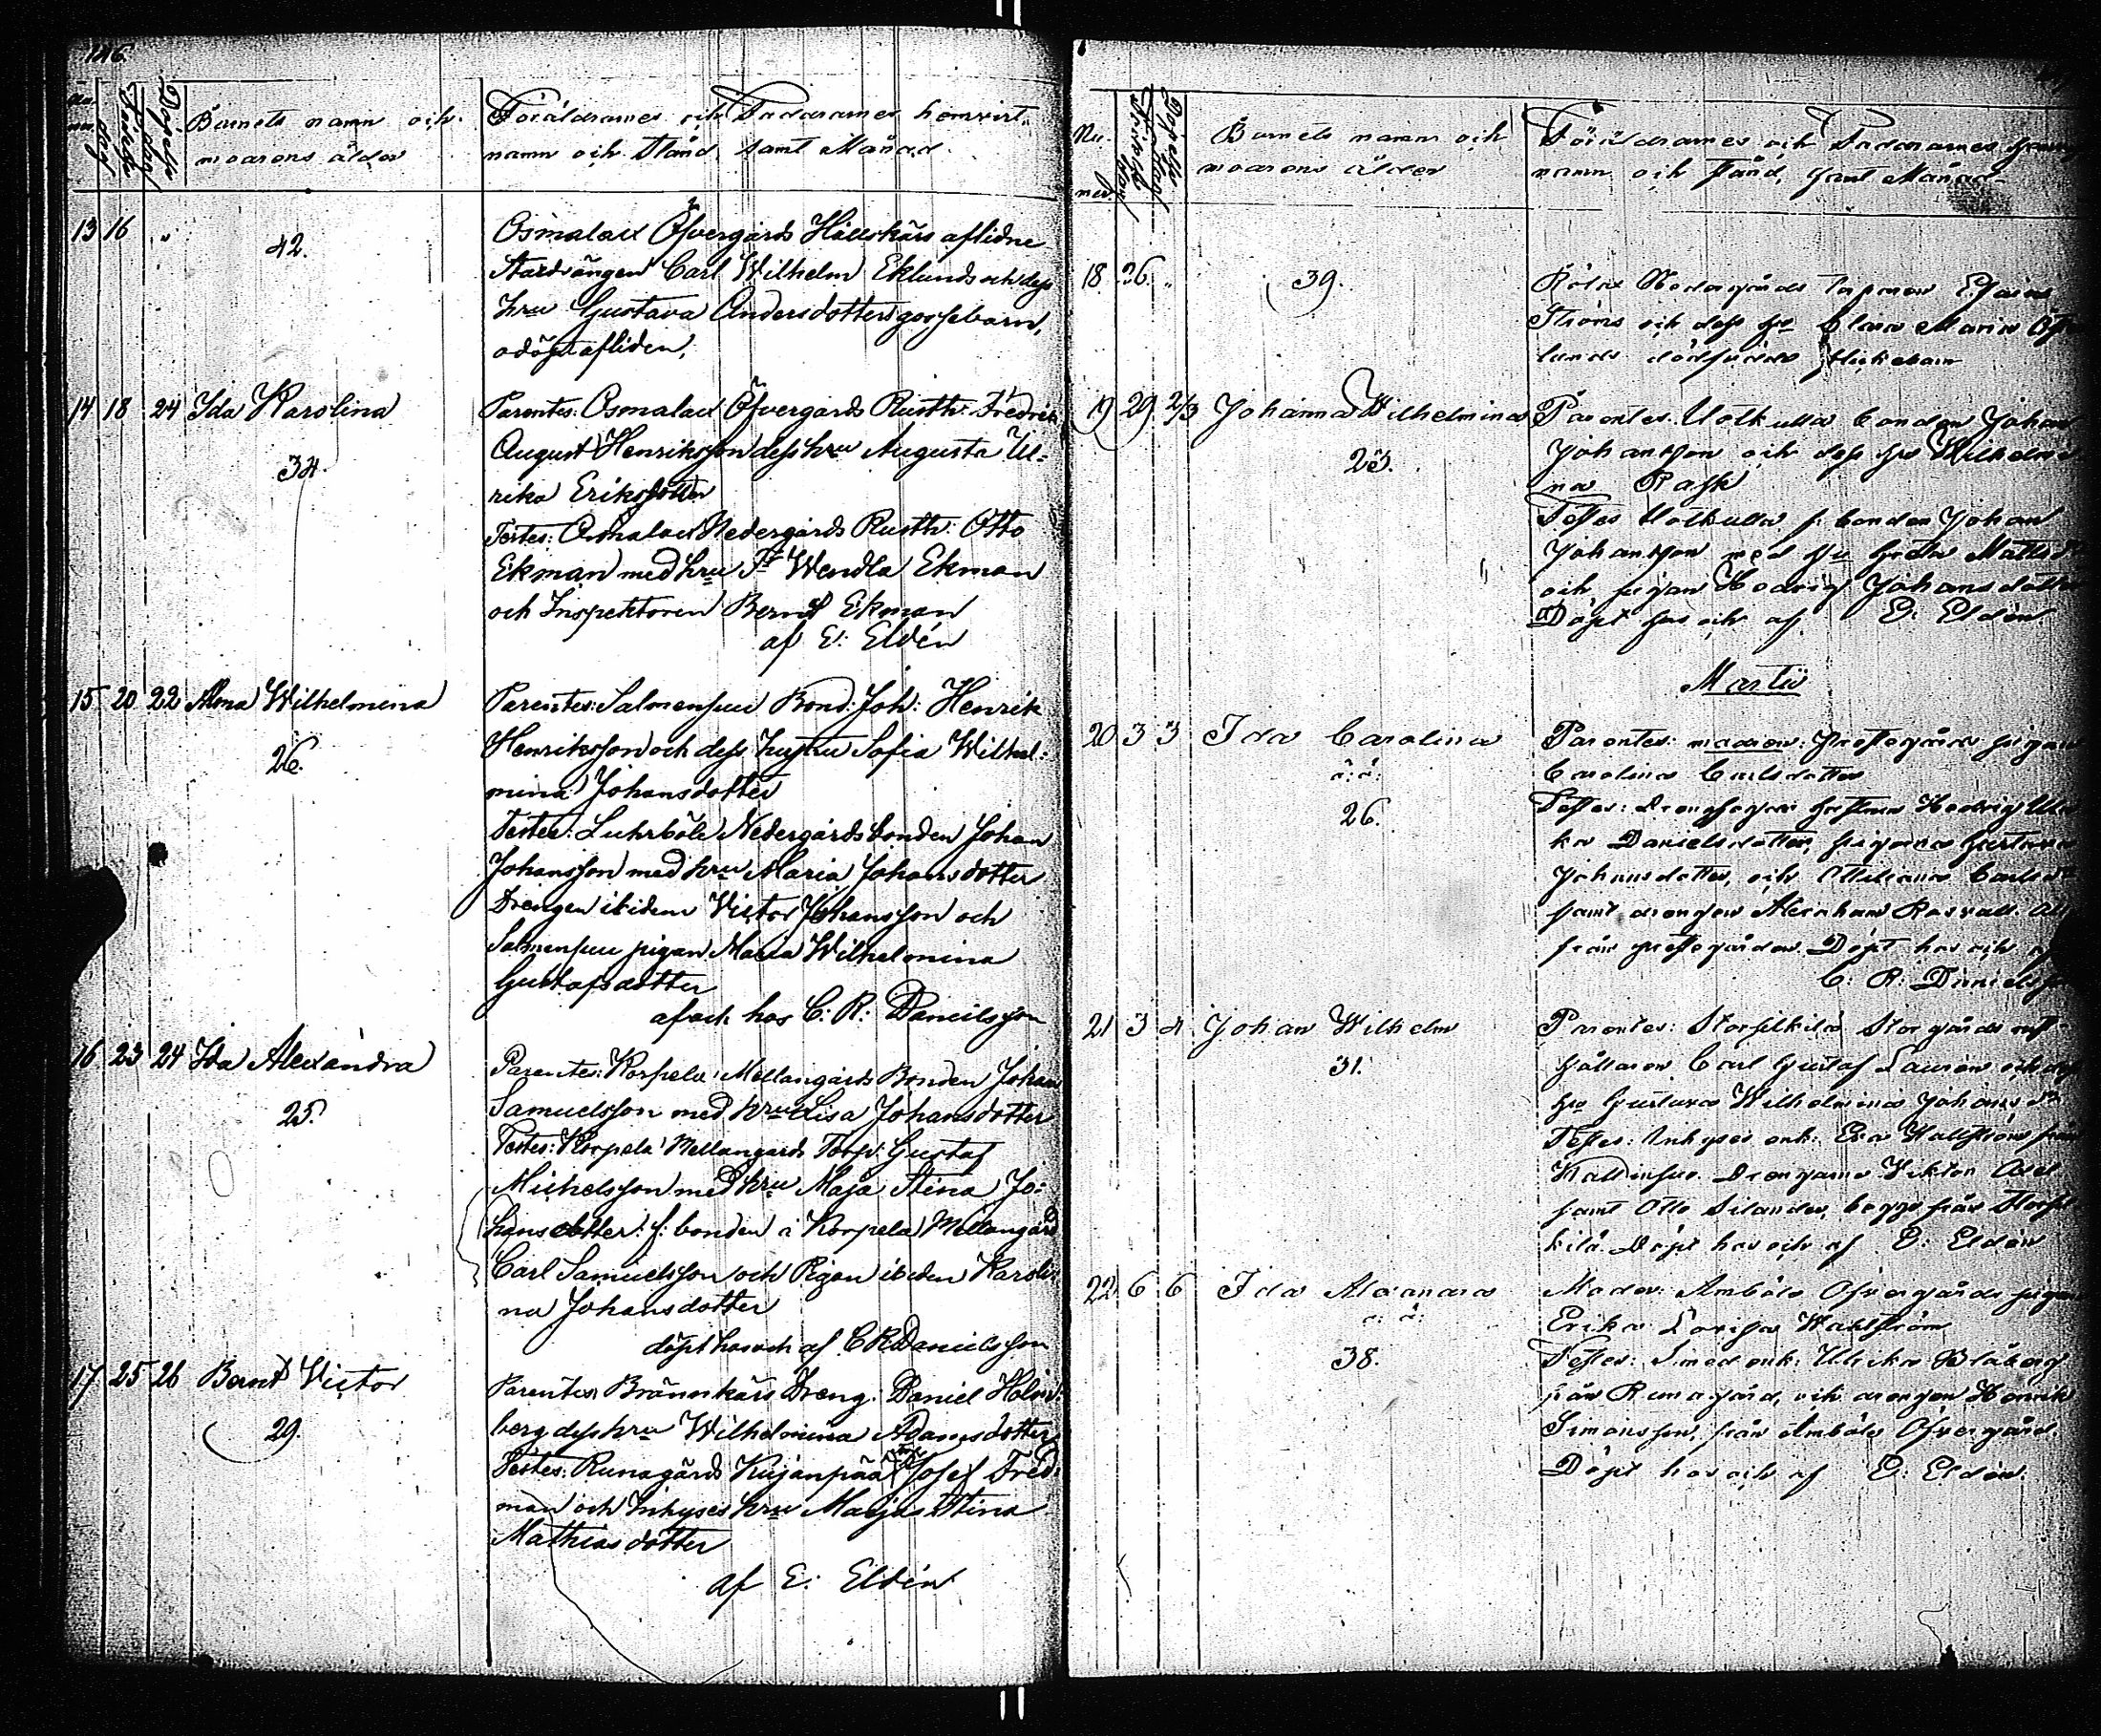 146.
Nu. mer. Födelse dag Döpelse dag Barnets namn och
moderns ålder
Föräldrarnes och Faddrarnes hemvist,
namn och stånd, samt Månad.
13 16 " 42.
Osmalax Öfvergårds Hällskärs aflidne
Carl Wilhelm Eklunds och dess
hru Gustava Andersdotters gossebarn,
odöpt afliden.
14 18 24 Ida Karolina
34.
Parentes: Osmalax Öfvergårds Rusth: Fredrik
August Henriksson dess hru Augusta Ul-
rika Eriksdotter
Testes: Osmalax Nedergårds Rusth: Otto
Ekman med hru Wendla Ekman
och Inspektoren Bernt Ekman
af E: Eldén
15 20 22 Alma Wilhelmina
26.
Parentes: Salmensuu Bond: Joh: Henrik
Henriksson och dess hustru Sofia Wilhel:
mina Johansdotter
Testes: Luhrböle Nedergårds bonden Johan
Johansson med hru Maria Johansdotter
Drengen ibidem Victor Johansson och
Salmensuu pigan Maria Wilhelmina
Gustafsdotter
af och hos C: R: Danielsson
16 23 24 Ida Alexandra
25.
Parentes: Korpela Mellangårds Bonden Johan
Samuelsson med hru Lisa Johansdotter
Testes: Korpela Mellangårds Torp: Gustaf
Michelsson med hru Maja Stina Jo:
hansdotter: f: bonden å Korpela Mellangård
Carl Samuelsson och Pigan ibidem Karoli
na Johansdotter
döpt hos och af C R Danielsson
17 25 26 Bernt Victor
29.
Parentes Brännkärs Dreng: Daniel Holm:
berg dess hru Wilhelmina Adamsdotter
Testes: Runagårds Kujanpää Josef Fred:
man och Inhyses hru Maja Stina
Mathiasdotter
af E: Eldén
Nu. mer. Födelse dag Döpelse dag Barnets namn och
moderns ålder
Föräldrarnes och Faddrarnes
namn och stånd, samt Månad.
18 26. " 39.
Nedergårds
Ströms och dess hu Clara Maria
lunds dödfödda flickebarn
19 29 2/3 Johanna Wilhelmina
25.
Parentes: bonden Johan
Johansson och dess hu Wilhelmi
na Rask
Testes f: bonden Johan
Johansson med hu Greta Mattsd:r
och pigan Hedvig Johansdotter
Döpt hos och af E: Eldén
Martii
20 3 3 Ida Carolina
o: ä:
26.
Parentes: modren: Prestegårds pigan
Carolina Carlsdotter
Testes: hustrun Hedvig Ulri
ka Danielsdotter, pigorna Gustava
Johansdotter, och Ottiliana Carlsd:r
samt drengen Abraham
från prestegården. Döpt hos och af
C: R: Danielsson
21 3 4 Johan Wilhelm
31.
Parentes: Storsilkilä Storgårds rust
hållaren Carl Gustaf och dess
hu Gustava Wilhelmina Johansd:r
Testes: Inhyses enk: Eva Wallström från
Drengarne Viktor Axel
samt Otto Silander, begge från Storsil
kilä. Döpt hos och af E: Eldén
22 6 6 Ida Alexandra
o: ä:
38.
Moder: Ambåle Öfvergårds pigan
Erika Lovisa Wahlström
Testes: Smed enk: Ulrika Blåberg
från Runagård, och drengen Henrik
Simonsson, från Ambåle Öfvergård.
Döpt hos och af E: Eldén.